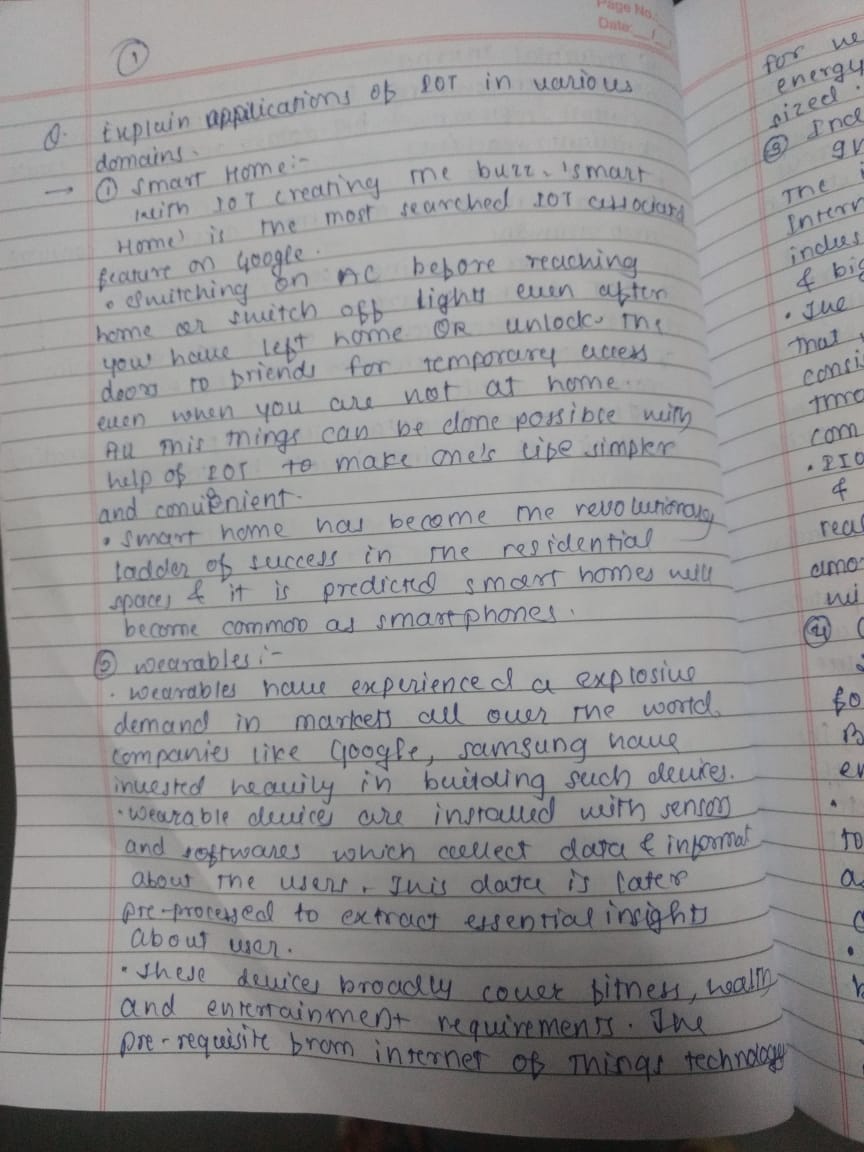 Page No.
Date: / /
①
Q. Explain applications of IOT in various
domains.
→ ① Smart Home:-
With IOT creating the buzz, 'smart
Home' is the most searched IOT associated
feature on Google.
• Switching on AC before reaching
home or switch off lights even after
you have left home OR unlock the
doors to friends for temporary access
even when you are not at home.
All this things can be done possible with
help of IOT to make one's life simpler
and convenient.
• Smart home has become the revolutionary
ladder of success in the residential
spaces & it is predicted smart homes will
become common as smartphones.
② Wearables :-
• Wearables have experienced a explosive
demand in markets all over the world.
Companies like Google, Samsung have
invested heavily in building such devices.
• Wearable devices are installed with sensors
and softwares which collect data & informat
about the users. This data is later
pre-processed to extract essential insights
about user.
• These devices broadly cover fitness, health
and entertainment requirements. The
pre-requisite from internet of Things technology
for
energy
sized.
③
The
Intern
indus
& big
• The
that
consi
com
• IIO
&
real
amo
wi
④
to